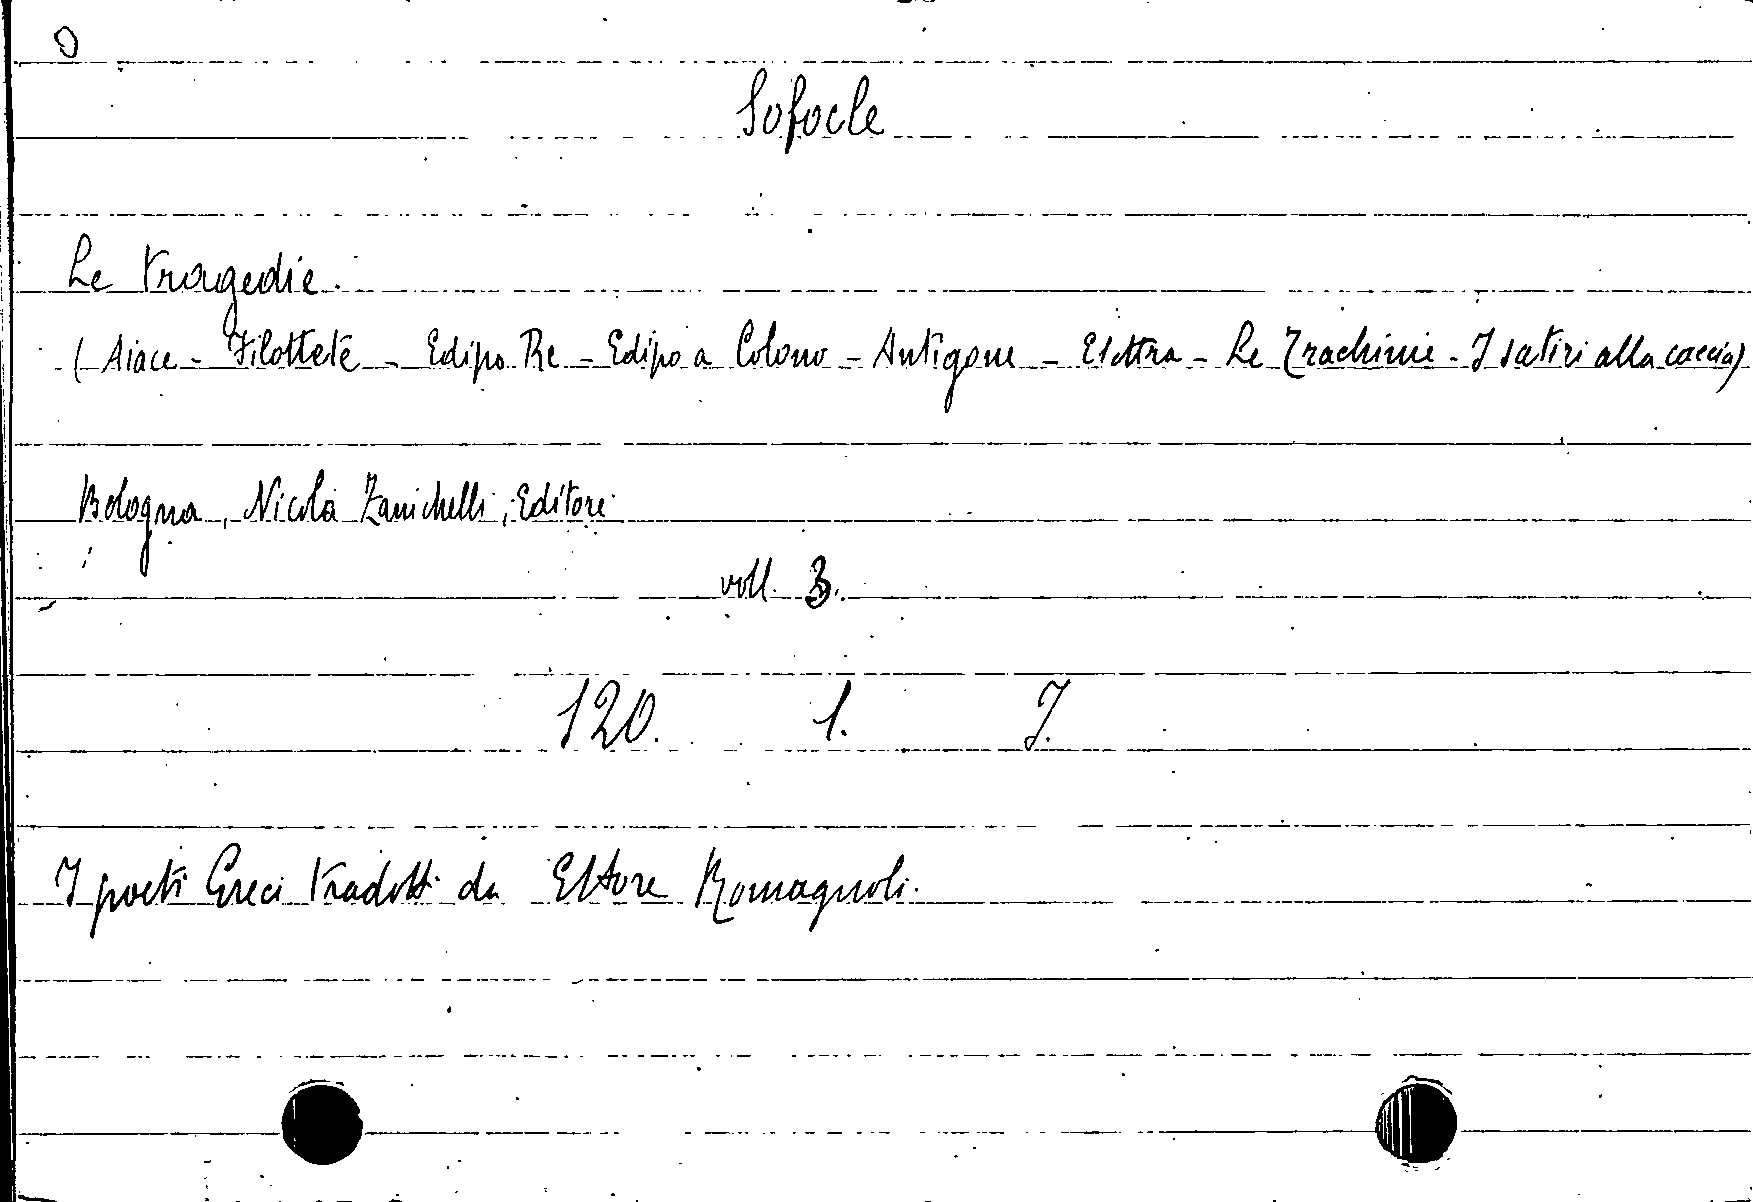 O
Sofocle
Le tragedie.
(Aiace - Filottete - Edipo Re - Edipo a Colono - Antigone - Elettra - Le Trachinie - I satiri alla caccia)
Bologna, Nicola Zanichelli, Editore
voll. 3.
120. 1. I.
I poeti Greci tradotti da Ettore Romagnoli.